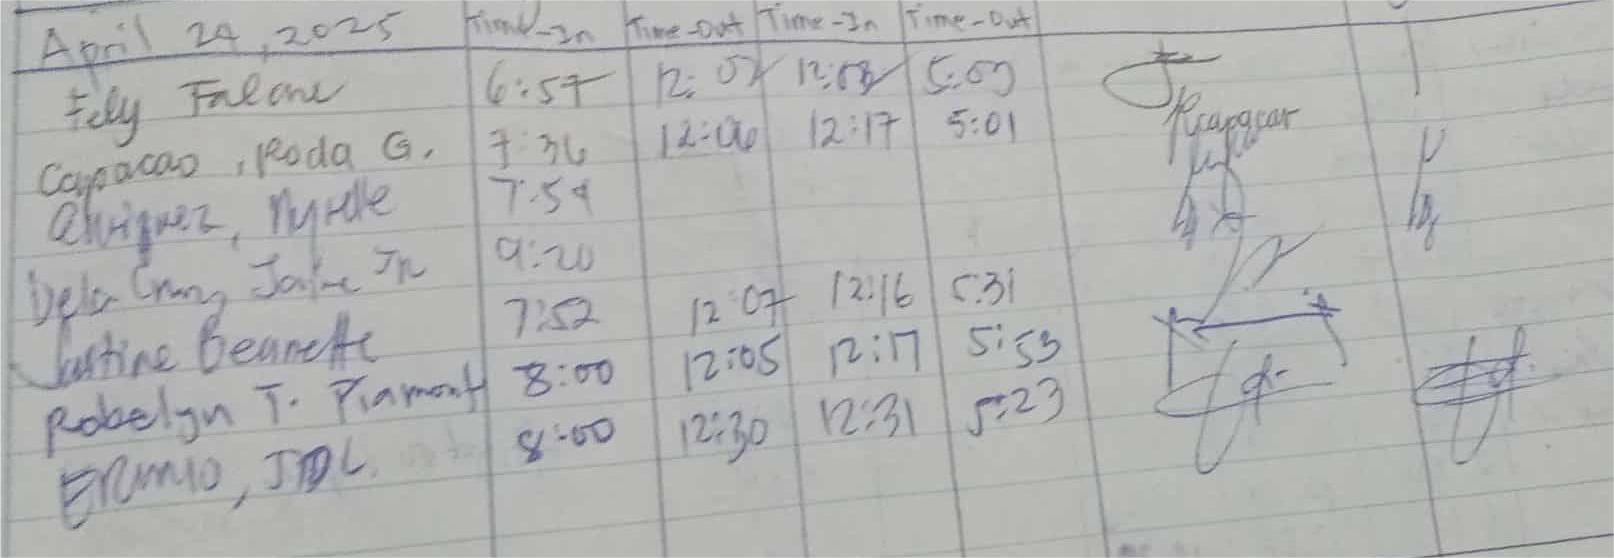 April 24, 2025 Time-In Time-Out Time-In Time-Out
Fely Falcone 6:57 12:02 12:03 5:03
Capacao, Roda G. 7:36 12:06 12:17 5:01
7:54
Dela Cruz, Jaime Jr 9:20
Justine Beanette 7:52 12:07 12:16 5:31
Robelyn T. Piamont 8:00 12:05 12:17 5:53
JDL. 8:00 12:30 12:31 5:23